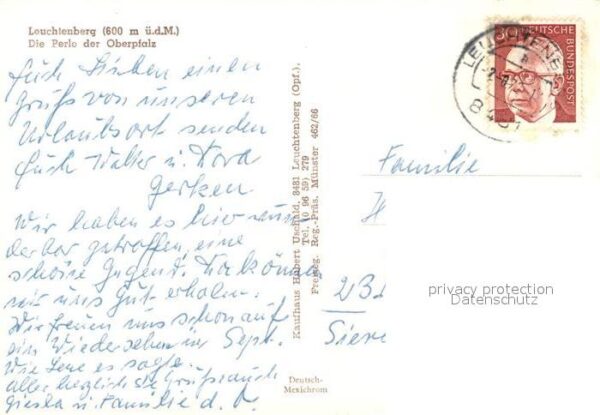 Leuchtenberg (600 m ü.d.M.)
Die Perle der Oberpfalz
Euch Lieben einen
Gruß von unseren
Urlaubsort senden
Euch Walter u. Nora
Gerken
Wir haben es hier wun
derbar getroffen, eine
schöne Gegend. Da können
wir uns gut erholen.
Wir freuen uns schon auf
ein Wiedersehen im Sept.
Wie Lene es sagte.
alles herzlich Grüße auch
Gisela u. Familie
Kaufhaus Hubert Uschald, 8481 Leuchtenberg (Opf.)
Tel. (0 96 59) 279
Freiseg. Reg.-Präs. Münster 462/66
Deutsch-
Mexichrom
30 DEUTSCHE
BUNDESPOST
LEUCHTENBERG
8481
Familie
H
23
Sieve
privacy protection
Datenschutz